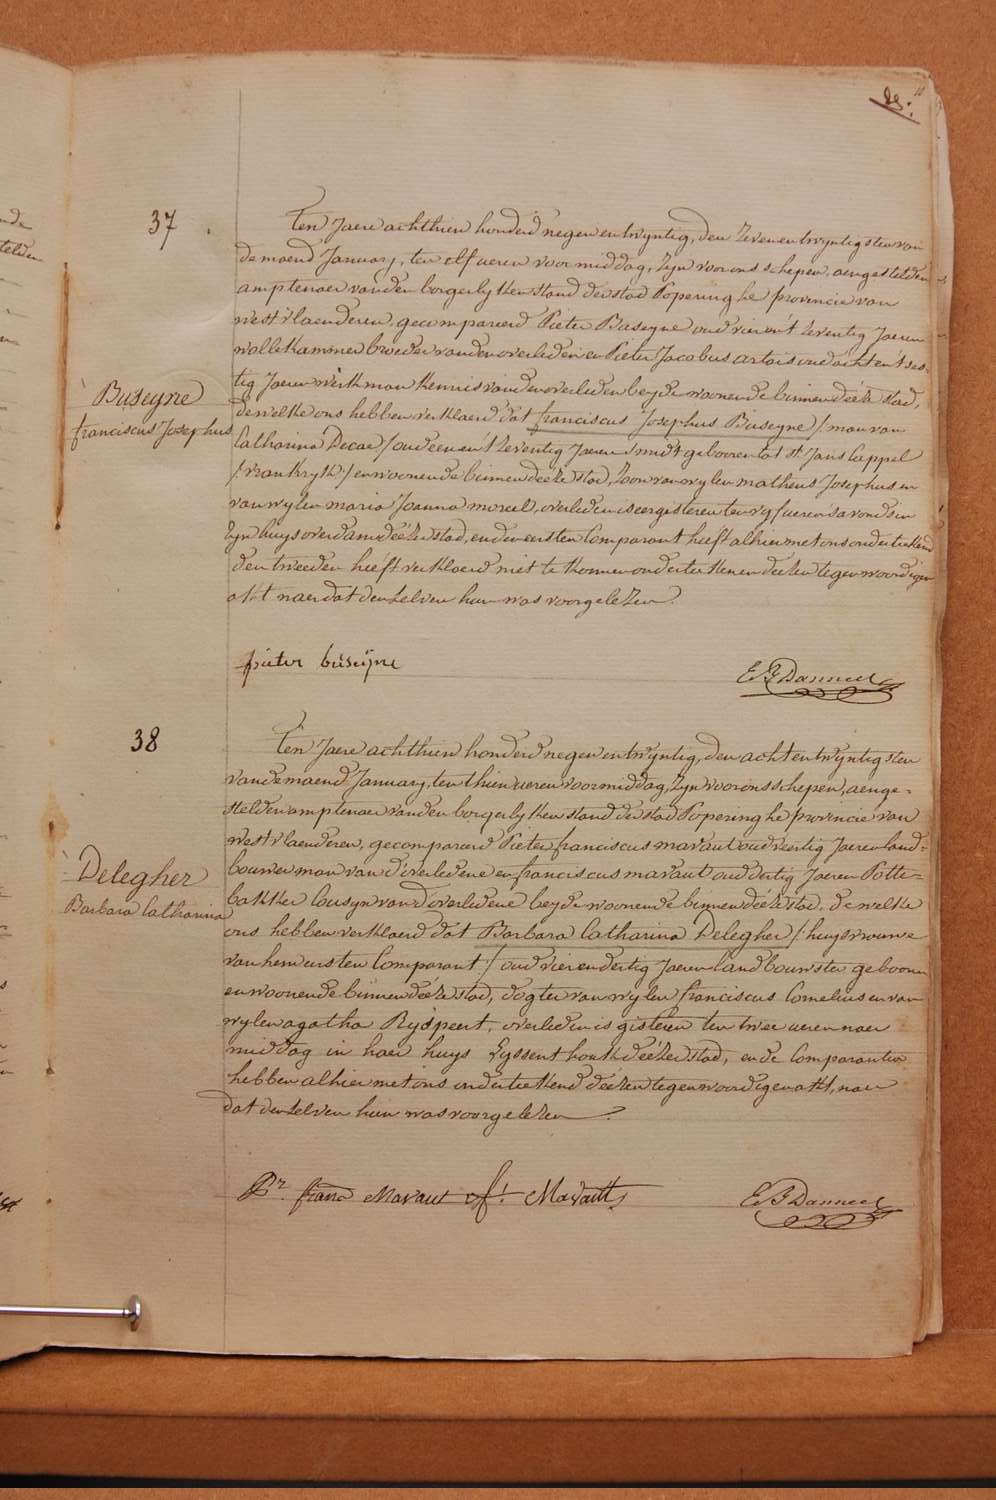 37
Ten Jaere achthien honderd negenentwyntig, den zevenentwyntigsten van
de maend January, ten elf ueren voormiddag, zyn voor ons schepen, aengestelden
amptenaer van den borgerlyken stand der stad Poperinghe provincie van
westvlaenderen, gecompareerd Pieter Buseyne oud vier en't zeventig Jaeren
wollekammer broeder van den overleden en Pieter Jacobus artois oud acht en't ses-
tig Jaeren werkman kennis van den overleden beyde woonende binnen deéze stad,
Buseyne
franciscus Josephus
dewelke ons hebben verklaerd dat franciscus Josephus Buseyne /: man van
Catharina Decae / oud een en't zeventig Jaeren smidt gebooren tot st. Jans Cappel
/: vrankryk / en woonende binnen deéze stad, zoon van wylen matheus Josephus en
van wylen maria Joanna moreel, overleden is eergisteren ten vyf ueren s'avonds in
zyn huys overdam deézer stad, en den eersten Comparant heeft alhier met ons ondertekend
den tweeden heéft verklaerd niet te konnen ondertekenen deézen tegenwoordigen
akt naer dat denzelven hun was voorgelezen.
pieter büseÿne
E B Danneel
38
Ten Jaere achthien honderd negenentwyntig, den achtentwyntigsten
van de maend January, ten thien ueren voormiddag, zyn voor ons schepen, aenge-
stelden amptenaer van den borgerlyken stand der stad Poperinghe provincie van
westvlaenderen, gecompareerd Pieter franciscus maraut oud veertig Jaeren land-
bouwer man van d'overledene en franciscus maraut oud dertig Jaeren Potte-
Delegher
Barbara Catharina
bakker Cousyn van d'overledene beyde woonende binnen deéze stad. de welke
ons hebben verklaerd dat Barbara Catharina Delegher /: huysvrouwe
van hem eersten Comparant / oud vierendertig Jaeren landbouwster gebooren
en woonende binnen deéze stad, dogter van wylen franciscus Cornelius en van
wylen agatha Ryspeert, overleden is gisteren ten twee ueren naer
middag in haer huys Eyssenthouk deézer stad, en de Comparanten
hebben alhier met ons ondertekend deézen tegenwoordigen akt, naer
dat denzelven hun was voorgelezen
Pr. franc Maraut f. Maraut
E B Danneel